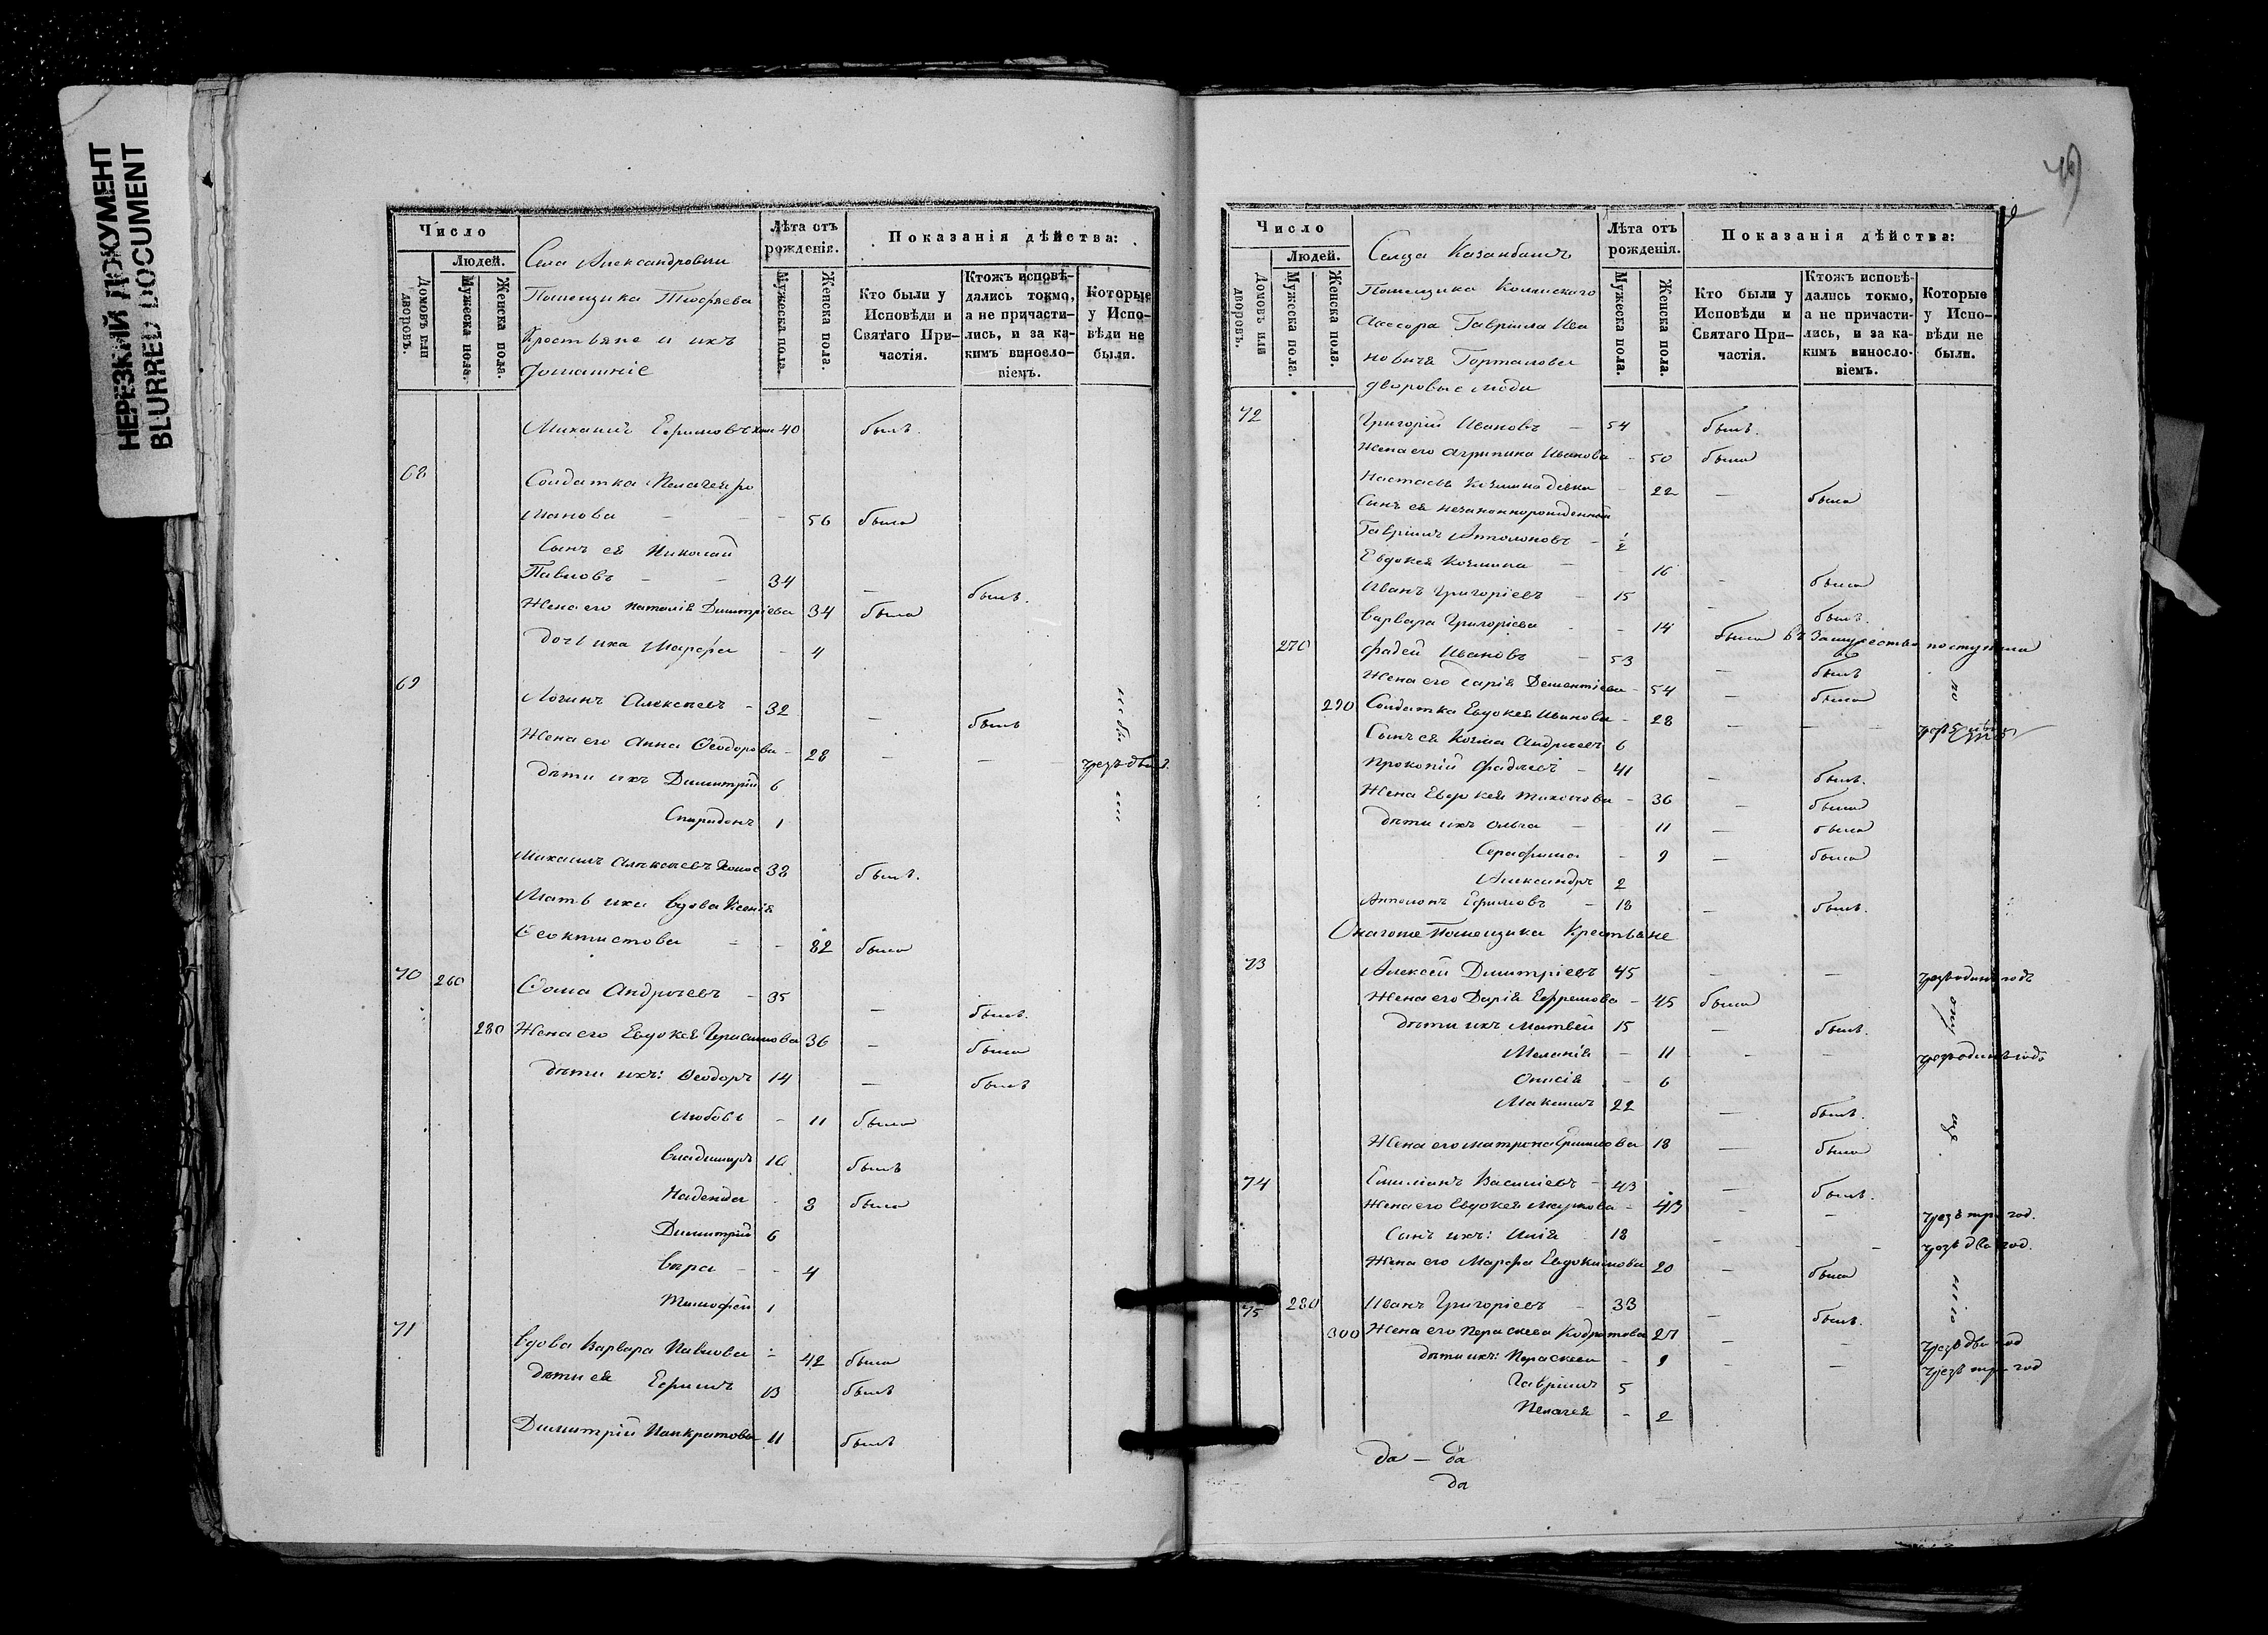 НЕРЕЗКИЙ ДОКУМЕНТ
BLURRED DOCUMENT
Число
Людей.
Домовъ или дворовъ.
Мужеска пола.
Женска пола.
Села Александровки
Помещика
Крестьяне и ихъ
домашніе
Лѣта отъ рожденія.
Мужеска пола.
Женска пола.
Показанія дѣйства:
Кто были у Исповѣди и Святаго При-частія.
Ктожъ исповѣ-дались токмо, а не причасти-лись, и за ка-кимъ винослo-віемъ.
Которые у Испо-вѣди не были.
Михаилъ Ефимовъ 40 былъ.
68 Солдатка Пелагея Ро
манова - - - 56 была
Сынъ ея Николай
Павловъ - - 34 - былъ.
Жена его Наталія Димитріева 34 была
дочь ихъ Марфа - 4
69 Логинъ Алексѣевъ - 32 - былъ
Жена его Анна Ѳеодорова - 28 - - чрезъ два г.
дѣти ихъ Димитрій 6
Спиридонъ 1
Михаилъ Алексѣевъ 38 былъ.
Мать ихъ вдова Ксенія
Ѳеоктистова - - 82 была
70 260 Ѳома Андреевъ - 35 - былъ.
280 Жена его Евдокея Герасимова 36 - была
дѣти ихъ: Ѳеодоръ 14 - былъ
Любовь - 11 была
Владимиръ 10 былъ
Надежда - 8 была
Димитрій 6
Вѣра - - 4
Тимофей 1
71 Вдова Варвара Павлова - 42 была
дѣти ея Ефимъ 13 былъ
Димитрій Панкратовы 11 былъ
Число
Людей.
Домовъ или дворовъ.
Мужеска пола.
Женска пола.
Сельца
Помещика
Асесора Гавріила Ива
новича Горталова
дворовые люди
Лѣта отъ рожденія.
Мужеска пола.
Женска пола.
Показанія дѣйства:
Кто были у Исповѣди и Святаго При-частія.
Ктожъ исповѣ-дались токмо, а не причасти-лись, и за ка-кимъ винослo-віемъ.
Которые у Испо-вѣди не были.
72 Григорій Ивановъ - 54 былъ.
Жена его Агрипина Иванова - 50 была
Настасья Козмина девка - 22 - была
Сынъ ея незаконнорожденный
Гавріилъ Апполоновъ - 1/2
Евдокея Козмина - - 16 - была
Иванъ Григоріевъ - 15 - былъ.
Варвара Григоріева - - 14 была въ замужество поступила
270 Фадей Ивановъ - 53 - былъ
Жена его Дарія Дементіева - 54 - была
290 Солдатка Евдокея Иванова - 28 - - -
Сынъ ея Козма Андреевъ 6
Прокопій Фадѣевъ - 41 - былъ.
Жена Евдокея Тихонова - 36 - была
дѣти ихъ Ольга - - 11 - была
Серафима - 9 - была
Александръ 2
Апполонъ Ефимовъ - 18 - былъ.
Онагоже Помещика Крестьяне
73 Алексѣй Димитріевъ 45 - - чрезъ одинъ годъ
Жена его Дарія Ефремова - 45 была
дѣти ихъ Матвѣй 15 - былъ.
Меланія - 11 - - чрезъ одинъ годъ
Онисія - 6
Максимъ 22 - былъ.
Жена его Матрона 18 - была
74 Емиліанъ Василіевъ - 43 - былъ.
Жена его Евдокея Маркова - 43 - - чрезъ три год.
Сынъ ихъ: Илія 18 - - - чрезъ два год.
Жена его Марфа Евдокимова 20 - была
75 280 Иванъ Григоріевъ - 33 - былъ.
300 Жена его Пераскева Кодратова 27 - - чрезъ два год
дѣти ихъ: Пераскева - 9 - - чрезъ три год
Гавріилъ 5
Пелагея - 2
да - да
да